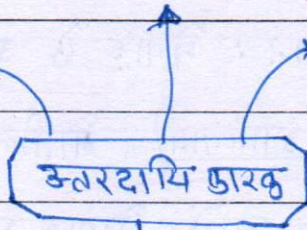 उत्तरदायि कारक